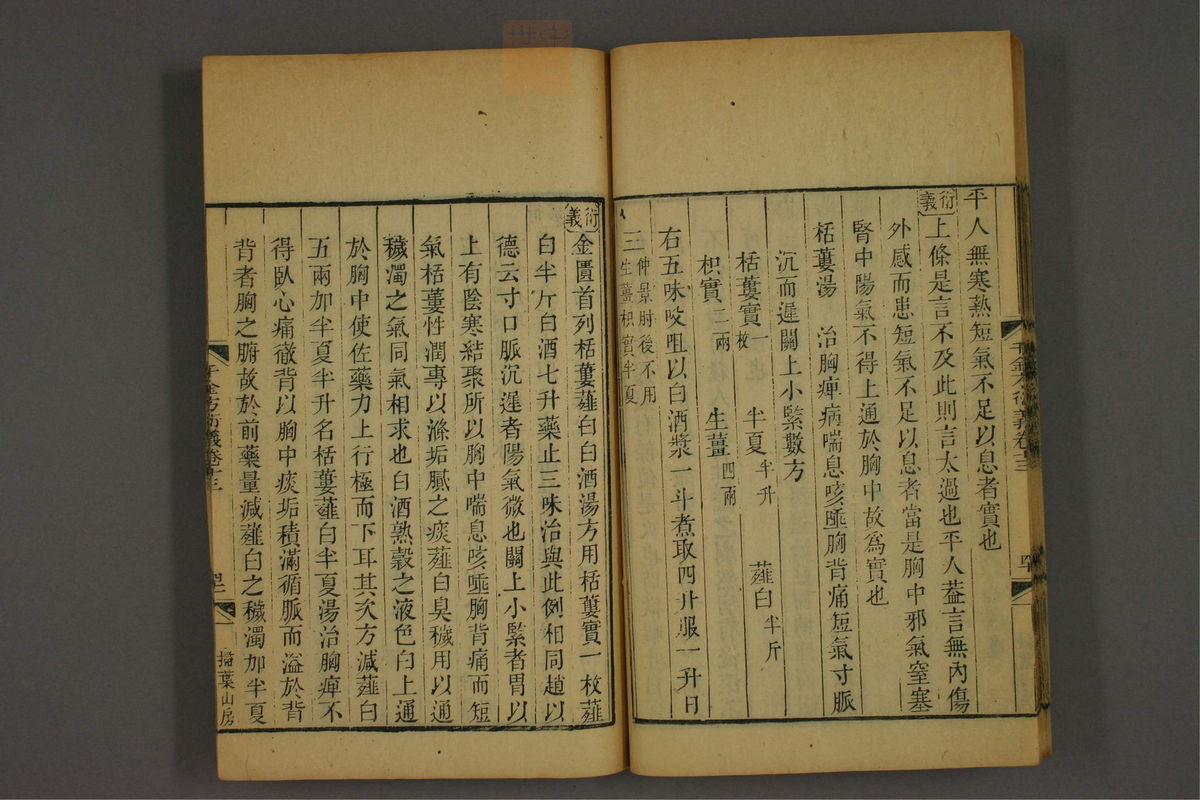 平人無寒熱短氣不足以息者實也
衍義
上條是言不及此則言太過也平人葢言無內傷
外感而患短氣不足以息者當是胸中邪氣窒塞
腎中陽氣不得上通於胸中故爲實也
栝蔞湯　治胸痺病喘息咳唾胸背痛短氣寸脈
沉而遲關上小緊數方
栝蔞實一枚　半夏半升　薤白半斤
枳實二兩　生薑四兩
右五味㕮咀以白酒漿一斗煮取四升服一升日
三仲景肘後不用生薑枳實半夏
千金方衍義卷十三
衍義
金匱首列栝蔞薤白白酒湯方用栝蔞實一枚薤
白半斤白酒七升藥止三味治與此例相同趙以
德云寸口脈沉遲者陽氣微也關上小緊者胃以
上有陰寒結聚所以胸中喘息咳唾胸背痛而短
氣栝蔞性潤專以滌垢膩之痰薤白臭穢用以通
穢濁之氣同氣相求也白酒熟穀之液色白上通
於胸中使佐藥力上行極而下耳其次方減薤白
五兩加半夏半升名栝蔞薤白半夏湯治胸痺不
得臥心痛徹背以胸中痰垢積滿循脈而溢於背
背者胸之腑故於前藥量減薤白之穢濁加半夏
千金方衍義卷十三
掃葉山房